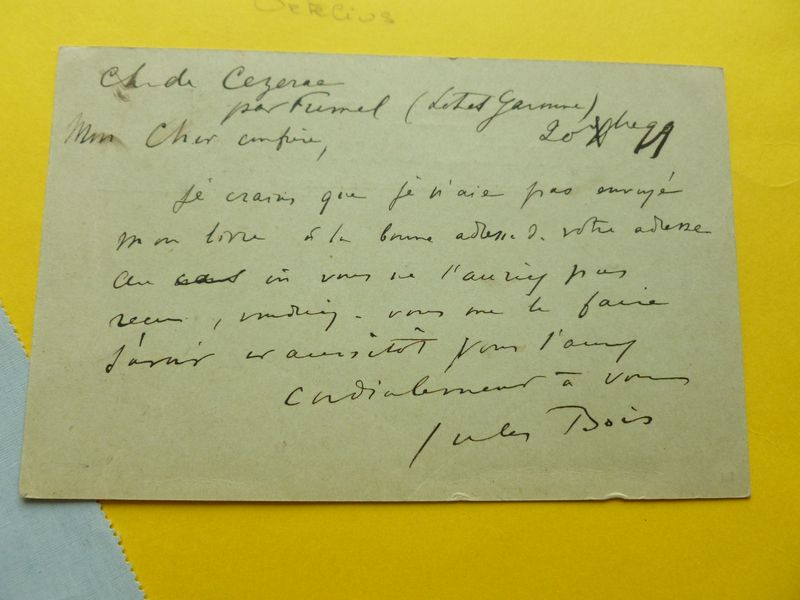 Ch. de Cezerac
par Fumel (Lot et Garonne)
20
Mon Cher confrère,
je crains que je n'aie pas envoyé
mon livre à la bonne adresse. votre adresse
Au cas où vous ne l'auriez pas
recu, voudriez-vous me le faire
savoir et aussitôt vous l'aurez
Cordialement à vous
Jules Bois